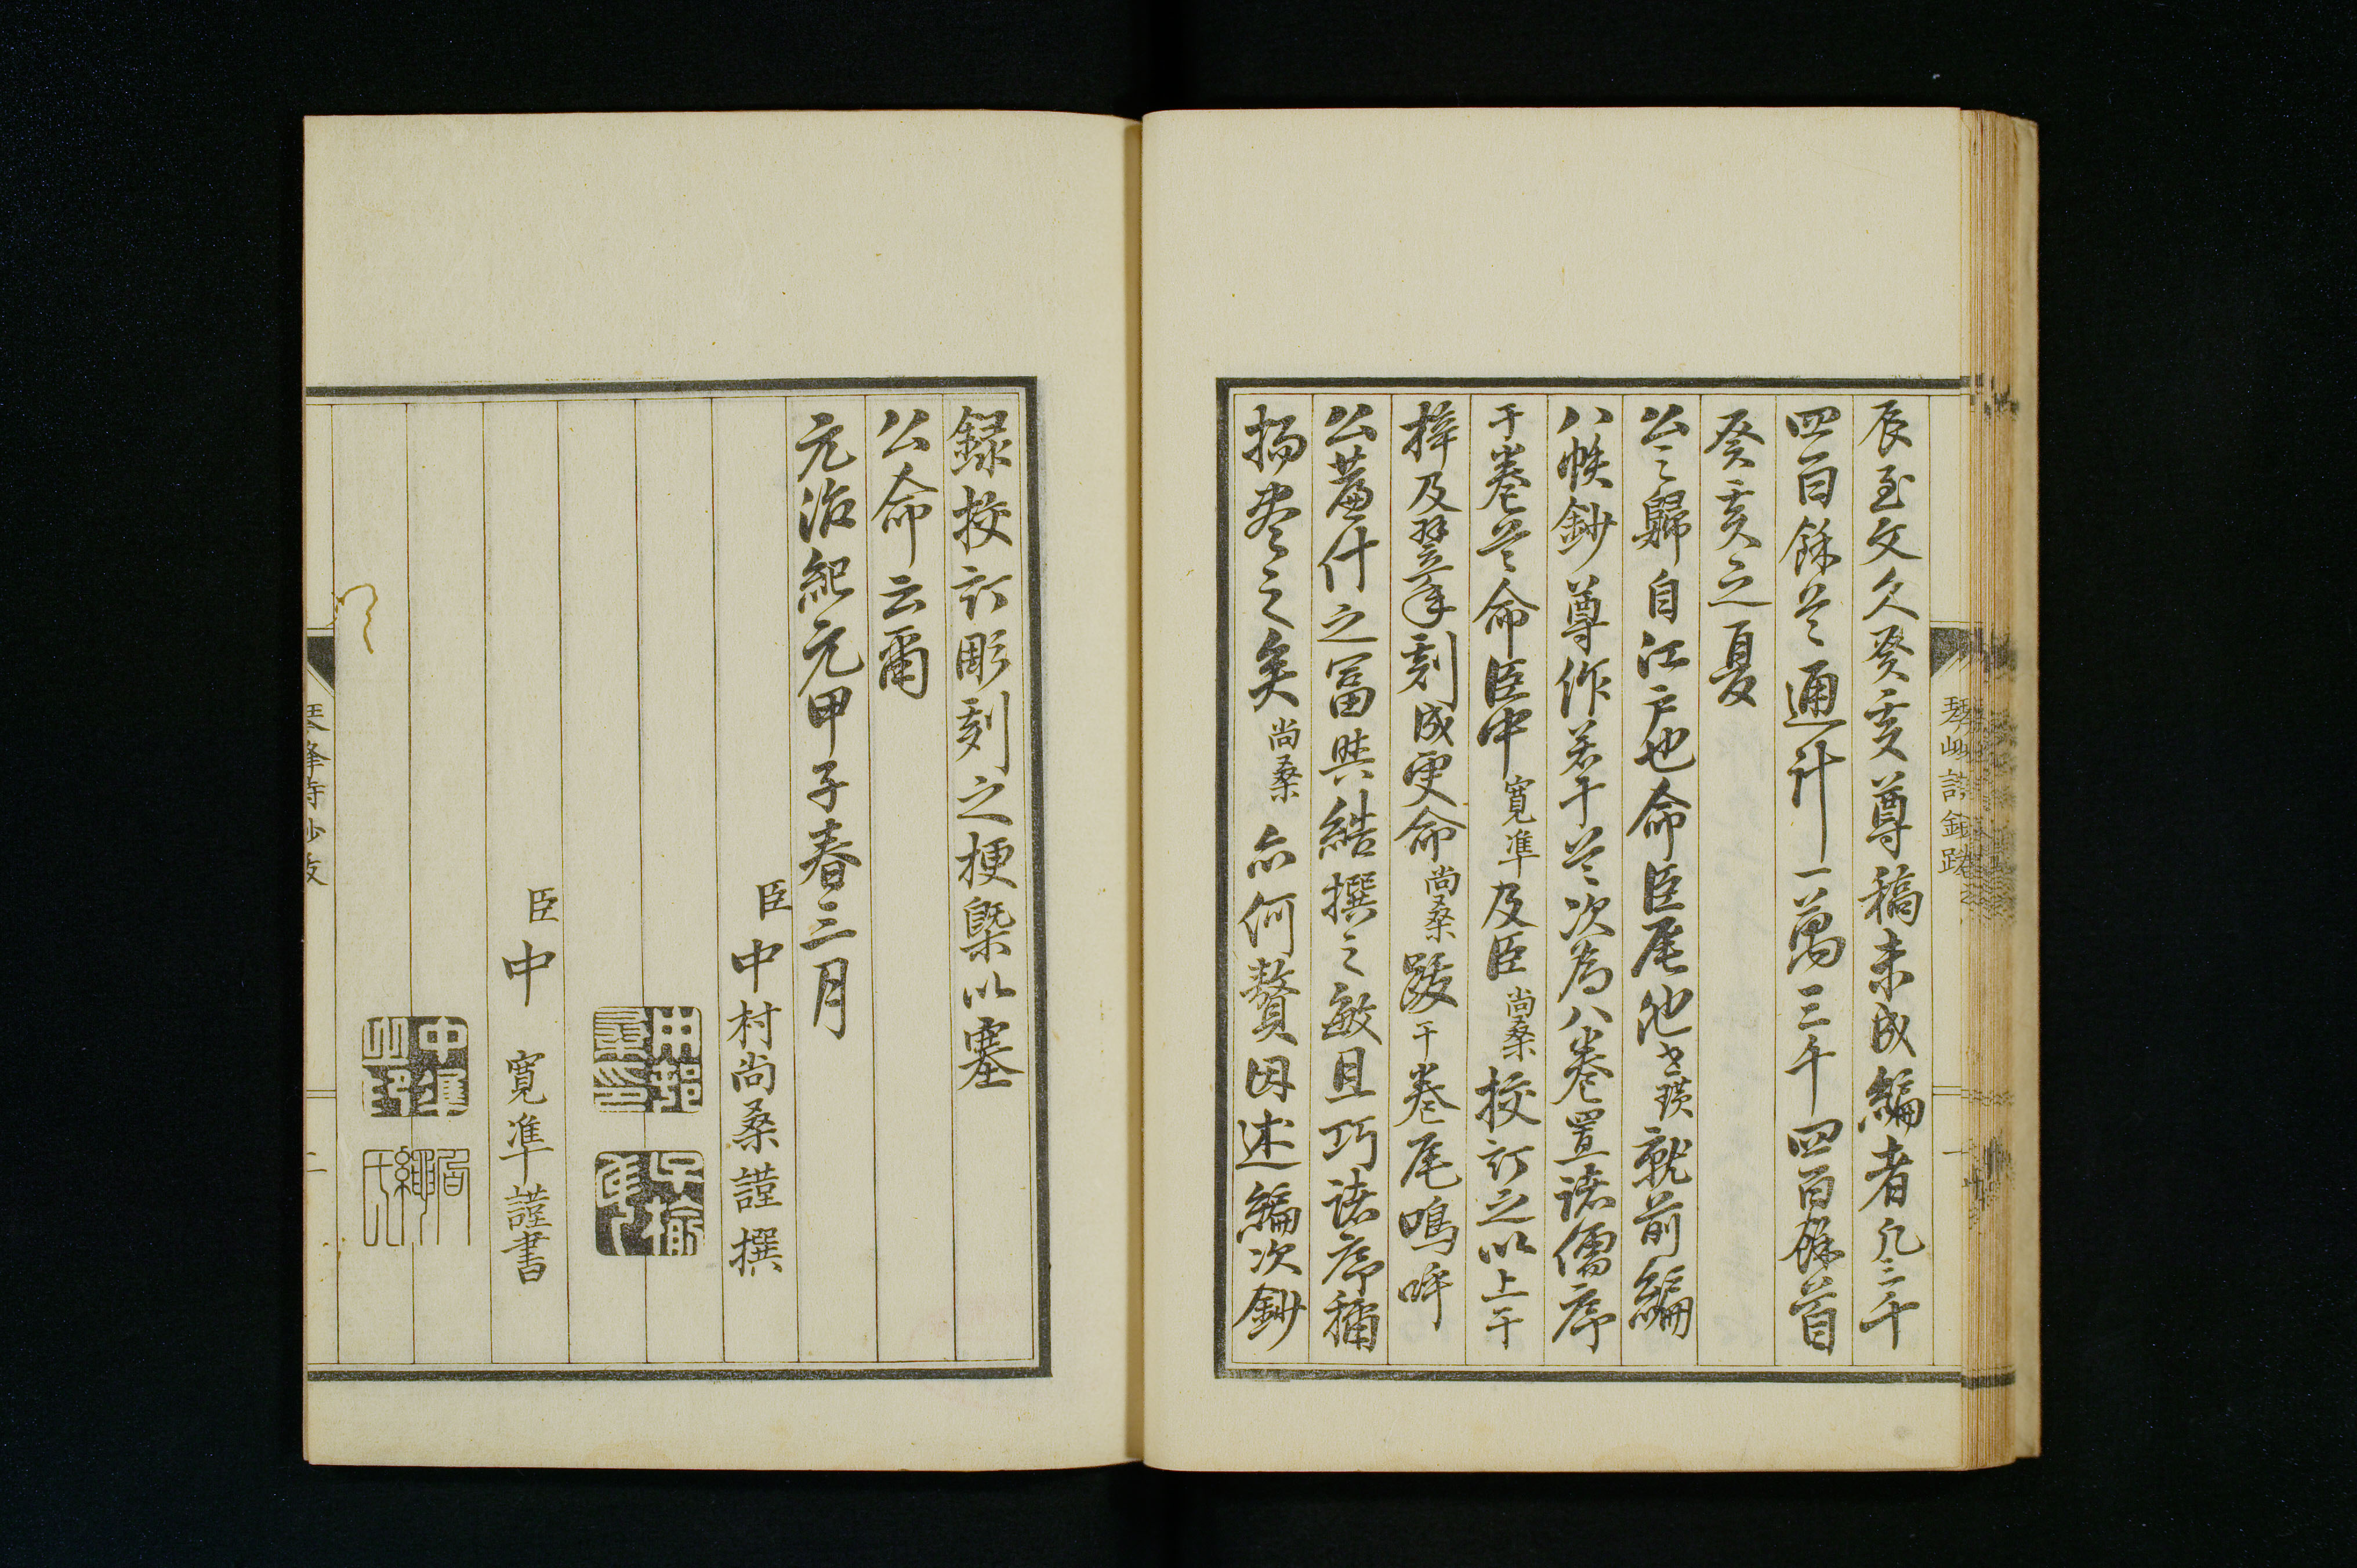 辰至文久癸亥尊稿未成編者凡三千
四百餘首通計一萬三千四百餘首
癸亥之夏
公之歸自江戶也命臣尾池世璜就前編
八帙鈔尊作若干首次為八卷置諸儒序
于卷首命臣中寬準及臣尚桑校訂之以上于
梓及翌年刻成更命尚桑跋于卷尾嗚呼
公著什之富與結撰之敏且巧諸序稱
揚尽之矣尚桑亦何贅因述編次鈔
琴峰詩鈔跋
一
録校訂彫刻之梗槩以塞
公命云爾
元治紀元甲子春三月
臣中村尚桑謹撰
臣中寬準謹書
琴峰詩鈔跋
二